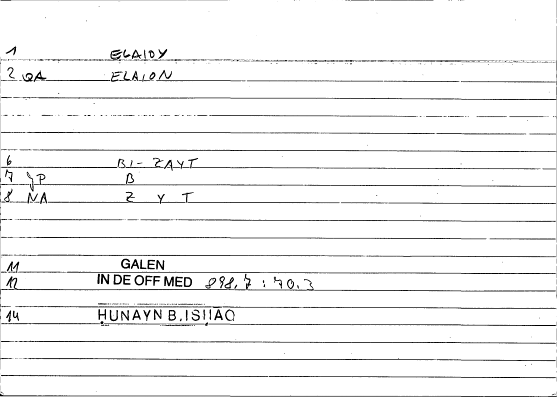 1 ELAIOY
2 QA ELAION
6 BI-ZAYT
7 JP B
8 NA Z Y T
11 GALEN
12 IN DE OFF MED 898.7 : 70.3
14 ḤUNAYN B.ISḤAQ